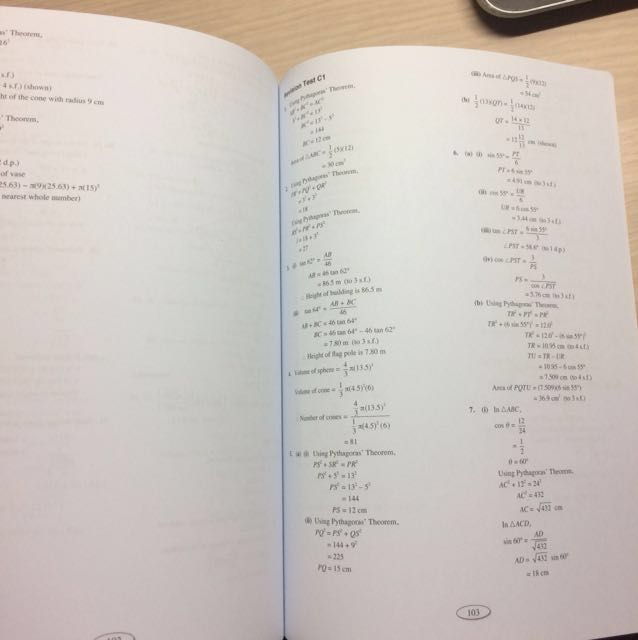 s' Theorem,
16²
s.f.)
4 s.f.) (shown)
ht of the cone with radius 9 cm
' Theorem,
d.p.)
of vase
25.63) − π(9)(25.63) + π(15)²
nearest whole number)
103
Revision Test C1
1. Using Pythagoras' Theorem,
AB² + BC² = AC²
5² + BC² = 13²
BC² = 13² − 5²
= 144
BC = 12 cm
Area of △ABC = 1/2 (5)(12)
= 30 cm²
2. Using Pythagoras' Theorem,
PR² = PQ² + QR²
= 3² + 3²
= 18
Using Pythagoras' Theorem,
RS² = PR² + PS²
= 18 + 3²
= 27
3. (i) tan 62° = AB/46
AB = 46 tan 62°
= 86.5 m (to 3 s.f.)
∴ Height of building is 86.5 m
(ii) tan 64° = (AB + BC)/46
AB + BC = 46 tan 64°
BC = 46 tan 64° − 46 tan 62°
= 7.80 m (to 3 s.f.)
∴ Height of flag pole is 7.80 m
4. Volume of sphere = 4/3 π(13.5)³
Volume of cone = 1/3 π(4.5)²(6)
Number of cones = (4/3 π(13.5)³)/(1/3 π(4.5)²(6))
= 81
5. (a) (i) Using Pythagoras' Theorem,
PS² + SR² = PR²
PS² + 5² = 13²
PS² = 13² − 5²
= 144
PS = 12 cm
(ii) Using Pythagoras' Theorem,
PQ² = PS² + QS²
= 144 + 9²
= 225
PQ = 15 cm
(iii) Area of △PQS = 1/2 (9)(12)
= 54 cm²
(b) 1/2 (13)(QT) = 1/2 (14)(12)
QT = (14 × 12)/13
= 12 12/13 cm (shown)
6. (a) (i) sin 55° = PT/6
PT = 6 sin 55°
= 4.91 cm (to 3 s.f.)
(ii) cos 55° = UR/6
UR = 6 cos 55°
= 3.44 cm (to 3 s.f.)
(iii) tan ∠PST = (6 sin 55°)/3
∠PST = 58.6° (to 1 d.p.)
(iv) cos ∠PST = 3/PS
PS = 3/(cos ∠PST)
= 5.76 cm (to 3 s.f.)
(b) Using Pythagoras' Theorem,
TR² + PT² = PR²
TR² + (6 sin 55°)² = 12.0²
TR² = 12.0² − (6 sin 55°)²
TR = 10.95 cm (to 4 s.f.)
TU = TR − UR
= 10.95 − 6 cos 55°
= 7.509 cm (to 4 s.f.)
Area of PQTU = (7.509)(6 sin 55°)
= 36.9 cm² (to 3 s.f.)
7. (i) In △ABC,
cos θ = 12/24
= 1/2
θ = 60°
Using Pythagoras' Theorem,
AC² + 12² = 24²
AC² = 432
AC = √432 cm
In △ACD,
sin 60° = AD/√432
AD = √432 sin 60°
= 18 cm
103